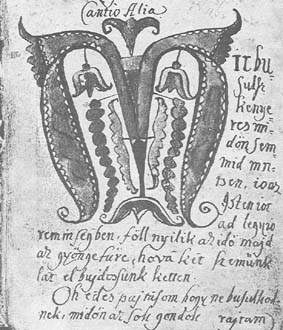 Cantio Alia
Ne bu,
sulj
kenye,
res mi,
dön sem,
mid nin,
tsen,
Isten jot
ad legyö
reménségben, föll nyilik az idö majd
az gyöngetüre, hová két szemünk
lát el bujdossunk ketten.
Oh édes pajtásom hogy ne busulkod,
nek, midön az sok gondok rajtam